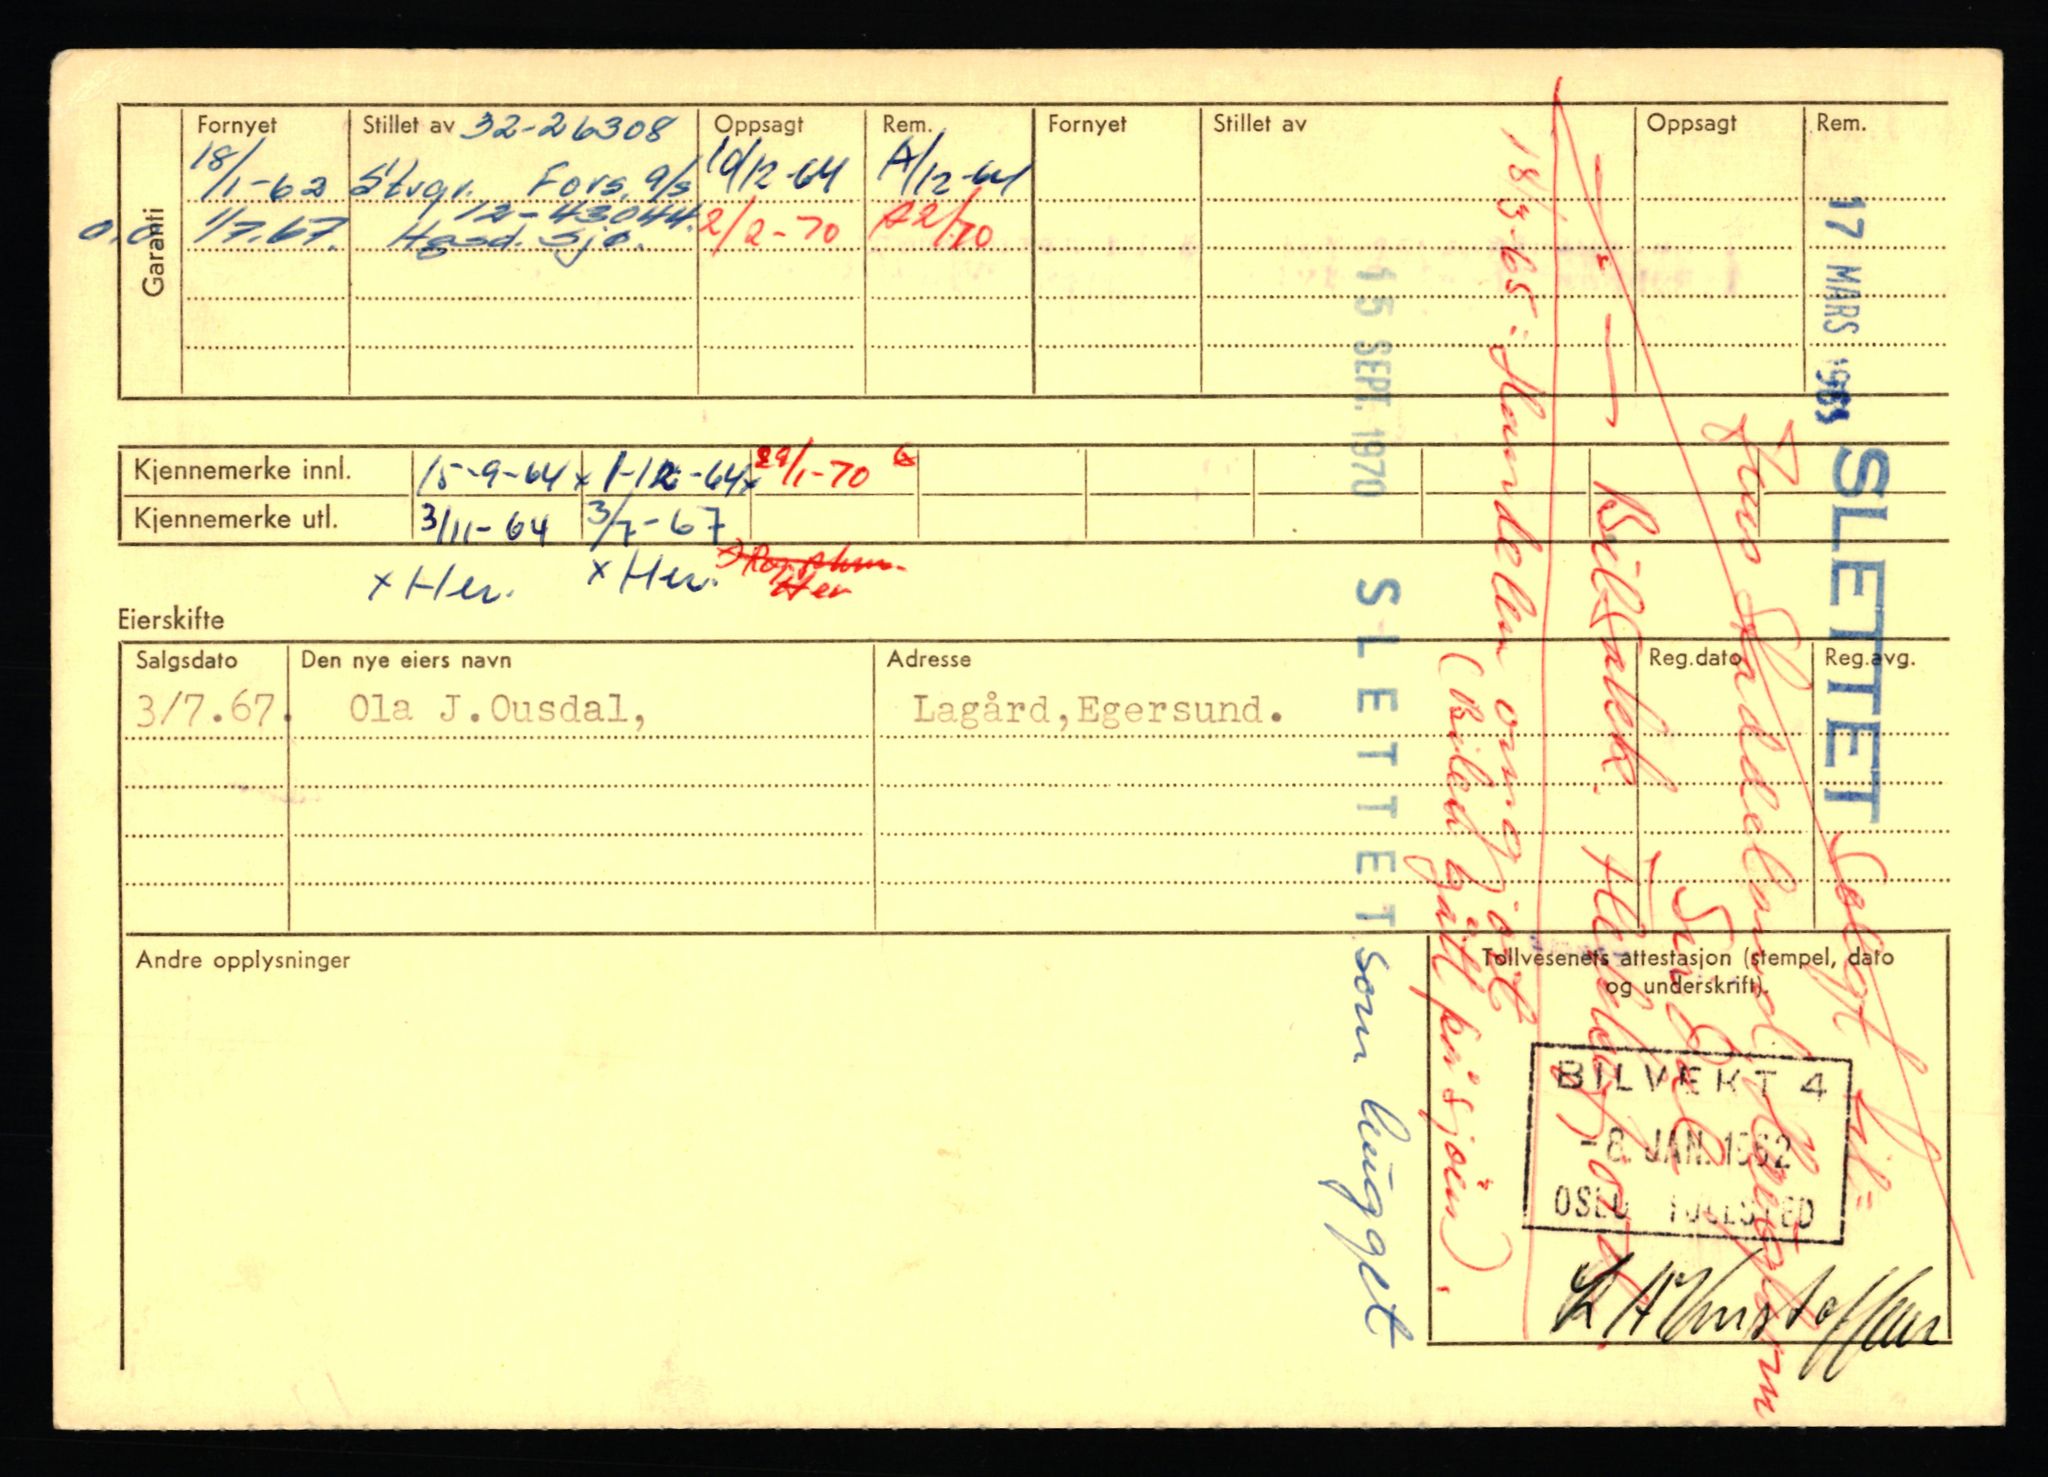 Garanti
Fornyet Stillet av 32-26308 Oppsagt Rem. Fornyet Stillet av Oppsagt Rem.
18/1-62 Stvgr. Fors. a/s 10/12-64 A/12-64
12-43044.
1/7.67. Hgsd. Sjø. 2/2-70 A2/70
Kjennemerke innl. 15-9-64 x 1-12-64 x 29/1-70
Kjennemerke utl. 3/11-64 3/7-67
x Her. x Her. Her
Eierskifte
Salgsdato Den nye eiers navn Adresse Reg.dato Reg.avg.
3/7.67. Ola J.Ousdal, Lagård,Egersund.
Andre opplysninger
Tollvesenets attestasjon (stempel, dato
og underskrift).
BILVEKT 4
-8. JAN. 1962
OSLO TOLLSTED
17 MARS 1965 SLETTET Solgt til:
Jens
Bilsalek.
18/3-65: Handelen omgjort
(Bilen gått på sjøen).
15 SEPT. 1970 SLETTET som hugget